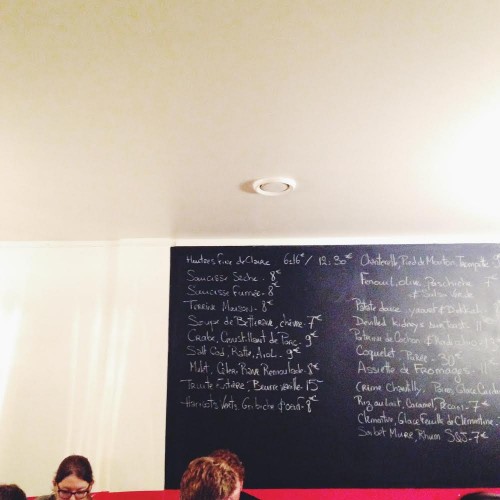 Huitres Fine de Claire 6:16€ / 12:30€
Saucisse Sèche. 8€
Saucisse Fumée. 8€
Terrine Maison. 8€
Soupe de Betterave, chèvre. 7€
Crabe, Croustillant de Porc. 9€
Salt Cod, Ratte, Aïoli. 9€
Mulet, Céleri Rave Remoulade. 8€
Truite Entière, Beurre 15
Haricots Verts, Gribiche 8€
Chanterelle, Pied de Mouton, Trompette
Fenouil, olive,
& Salsa Verde
Patate douce, yaourt &
Devilled kidneys
de Cochon
Coquelet, Purée. 39€
Assiette de Fromages. 11
Crème Chantilly, Poire, Glace
Riz au Lait, Caramel, Pécan. 7€
Clémentine, Glace Feuille de Clémentine.
Sorbet Mure, Rhum S&S. 7€